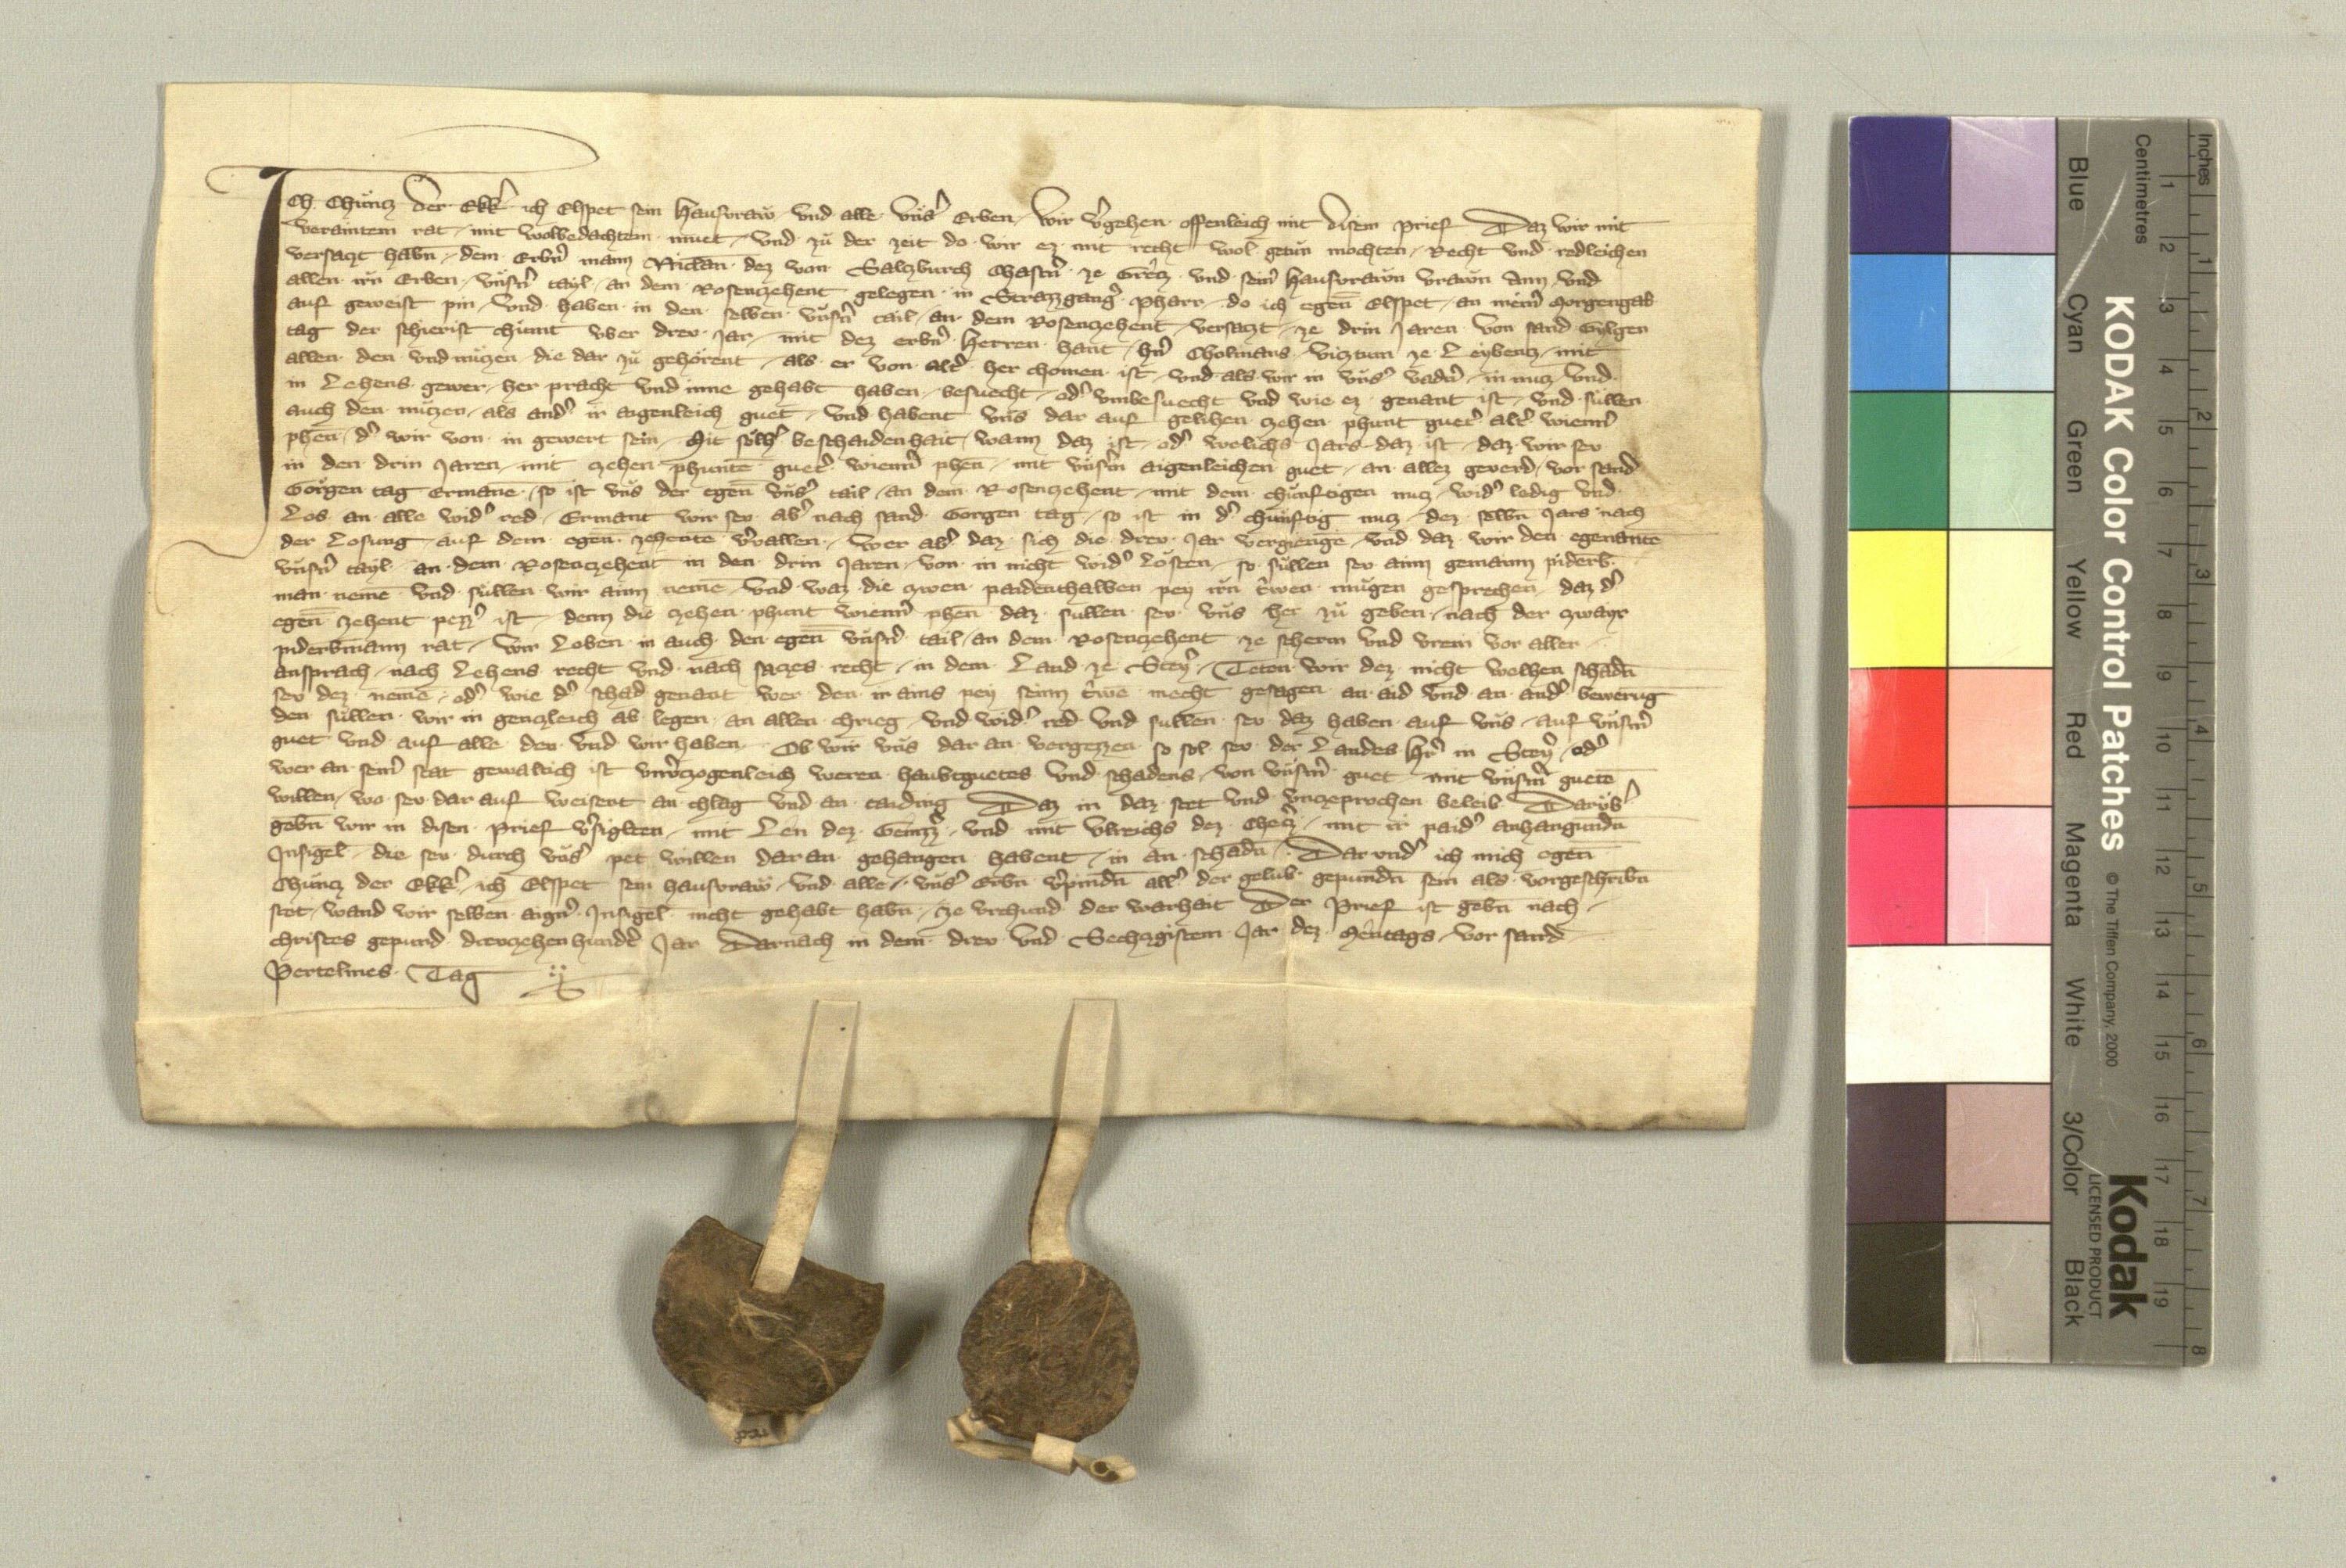 Ich Chůncz der Ekk̉ ich Elspet sein Hausvraw vnd alle vns̉ Erben wir v̉gehen offenleich mit disem prief Daz wir mit
veraintem rat mit wolbedachtem muet vnd zů der zeit do wir ez mit recht wol getůn mochten Recht vnd redleichen
versaczt habn̄ dem Erbn̉ mann Niclan̄ dez von Salczburch Chastn̉ ze Grecz vnd sein̉ Hausvrawn vrawn Ann vnd
allen irn Erben vnsn̉ tayl an dem Rosenczehent gelegen in Strazzgang̉ pharr do ich egen̄ Elspet an mein̉ Morgengab
auf geweist pin vnd haben in den selben vnsn̉ tail an dem Rosenczehent versaczt ze drin Jaren von sand Gylgen
tag der schierist chumt vber drev Jar mit dez erbn̉ Herren hant hn̉ Cholmans vicztum ze Leybencz mit
allen den vnd nuczen die dar zů gehorent als er von alt̉ her chomen ist vnd als wir in vns̉ vadn̉ in nucz vnd
in Lehens gewer her pracht vnd inne gehabt haben besuecht od̉ vnbesuecht vnd wie ez genant ist vnd sullen
auch den nuczen als and̉ ir aigenleich guet vnd habent vns dar auf gelihen zehen phunt guet̉ alt̉ wienn̉
phen̄ d̉ wir von in gewert sein Mit solh̉ beschaidenhait wann daz ist od̉ welichs Jars daz ist daz wir sev
in den drin Jaren mit zehen phunte̅ guet̉ wienn̉ phen̄ mit vnsr̉m aigenleichen guet an allez geverd vor sand
Gorgen tag Ermane̅ so ist vns der egen̄ vns̉ tail an dem Rosenczehent mit dem chunftigen nucz wid̉ ledig vnd
Los an alle wid̉ red Ermant wir sev ab̉ nach sand Gorgen tag so ist in d̉ chunftig nucz dez selbn̄ Jars nach
der Losung auf dem egen̄ zehente̅ v̉vallen wer ab̉ daz sich die drev Jar vergienge vnd daz wir den egenante̅
vnsn̉ tayl an dem Rosenczehent in den drin Jaren von in nicht wid̉ losten so sullen sev ainn gemainn piderb̄
man neme̅ vnd sullen wir ainn neme̅ vnd waz die zwen paidenthalben pey irn trwen mugen gesprechen daz d̉
egen̄ zehent pezz̉ ist denn die zehen phunt wienn̉ phen̄ daz sullen sev vns her zů geben nach der zwayr
piderbmann rat wir Loben in auch den egen̄ vnsn̉ tail an dem Rosenczehent ze scherm vnd vrein vor aller
ansprach nach Lehens recht vnd nach saczes recht in dem Land ze Steỷ Teten wir dez nicht welhen schadn̄
sev dez neme̅ od̉ wie d̉ schad genant wer den ir ains pey seinn trwe̅ mecht gesagen an aid vnd an and̉ bewerug̅
den sullen wir in genczleich ab legen an allen chrieg vnd wid̉ red vnd sullen sev daz haben auf vns auf vnsr̉m
guet vnd auf alle dev vnd wir haben Ob wir vns dar an vergezzen so sol sev der Landes Hr̉ in Steỷ od̉
wer an sein̉ stat gewaltich ist vnv̉czogenleich weren haubtguetes vnd schadens von vnsr̉m guet mit vnsr̉m guete̅
willen wo sev dar auf weisent an chlag vnd an taiding Daz in daz stet vnd vnczeprochen beleib Darvb̉
gebn̄ wir in disen prief v̉siglten mit Len dez Gemzz̉ vnd mit Vlreichs dez Checz̉ mit ir paid̉ anhangundn̄
Insigel̄ die sev durch vns̉ pet willen dar an gehangen habent in an schadn̄ Dar vnd̉ ich mich egen̄
Chuncz der Ekk̉ ich Elspet sein hausvraw vnd alle vns̉ Erbn̄ v̉pindn̄ all̉ der gelub gepundn̄ sein als vorgeschribn̄
stet wand wir selben aign̉ Insigel̄ nicht gehabt habn̄ ze vrchund der warhait Der Prief ist gebn̄ nach
christes gepurd drevczehenhundt̉ Jar Darnach in dem drev vnd Sechczgistem Jar dez Mentags vor sand
Pertelmes Tag
KODAK Color Control Patches
© The Tiffen Company, 2000
Kodak
LICENSED PRODUCT
Blue Cyan Green Yellow Red Magenta White 3/Color Black
Centimetres
1 2 3 4 5 6 7 8 9 10 11 12 13 14 15 16 17 18 19
Inches
1 2 3 4 5 6 7 8